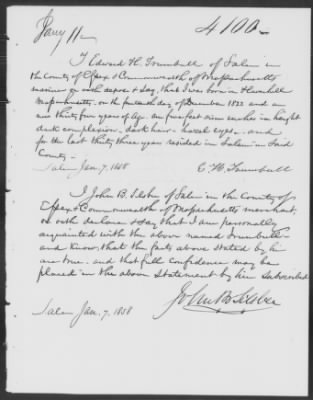 Jany 11
4100
I Edward H. Trumbull of Salem in
the County of Essex & Commonwealth of Massachusetts
mariner on oath depose & say, that I was born in Haverhill
Massachusetts, on the fourteenth day of December 1822 and am
now thirty five years of Age. Am five feet nine inches in height
dark complexion, dark hair - hazel eyes, and
for the last thirty three years resided in Salem in said
County -
Salem Jan. 7. 1858
E. H. Trumbull
I John B. Silsbee of Salem in the County of
Essex & Commonwealth of Massachusetts merchant,
on oath declare & say that I am personally
acquainted with the above named Trumbull -
and know, that the facts above stated by him
are true - and that full confidence may be
placed in the above Statement by him Subscribed
John B Silsbee
Salem Jan. 7. 1858